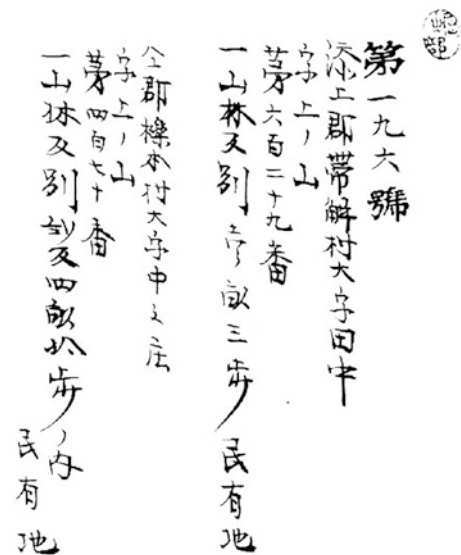 第一九六號
添上郡帶解村大字田中
字上ノ山
第六百二十九番
一山林反別壱畝三歩 民有地
仝郡櫟本村大字中之庄
字上ノ山
第四百七十番
一山林反別弐反四畝廿八歩ノ内
民有地